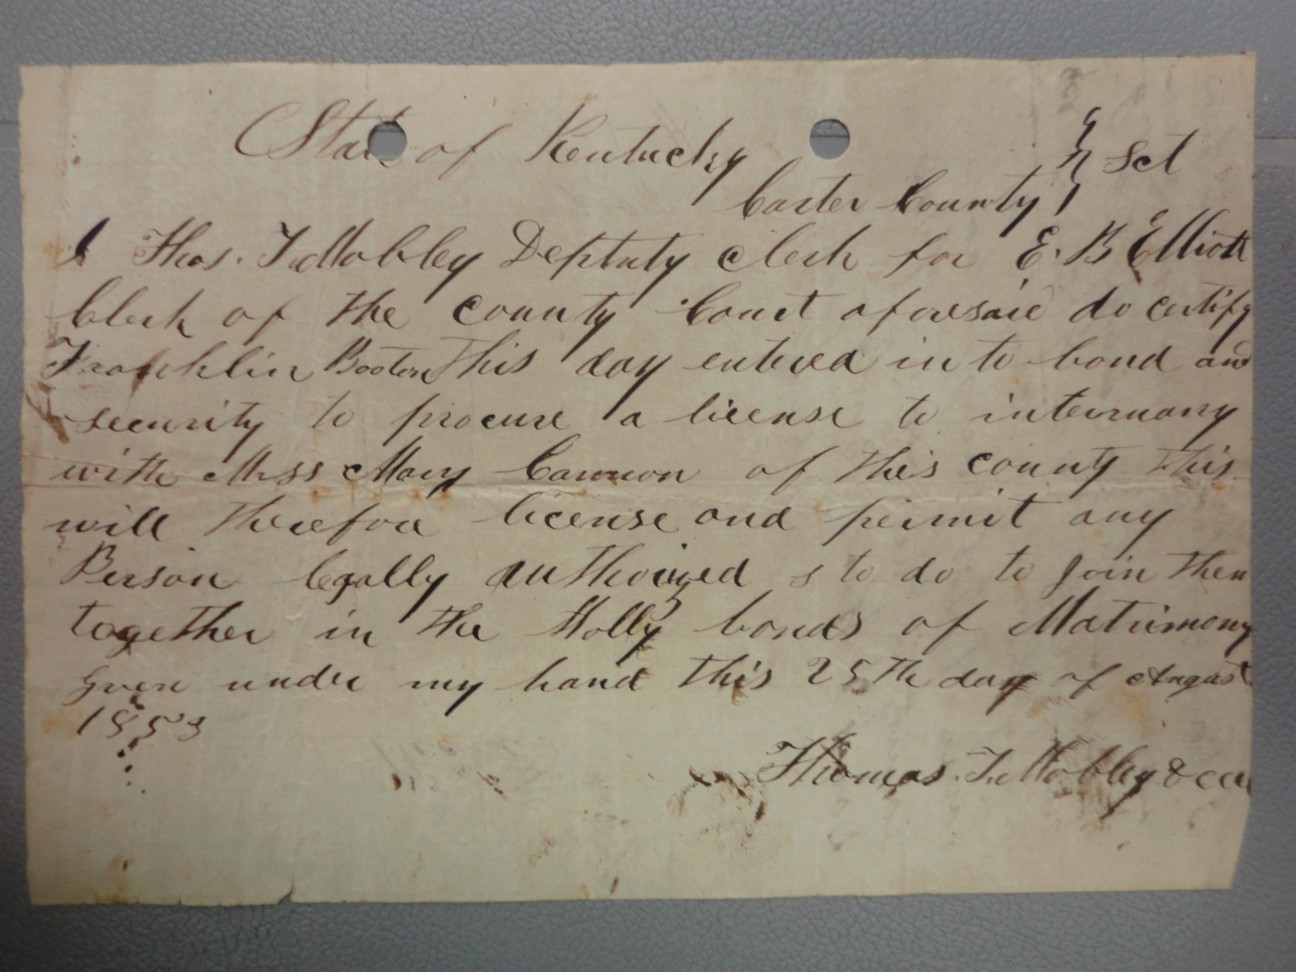 State of Kentucky } Sct
Carter County }
I Thos. T. Mobley Deptuty clerk for E. B Elliott
Clerk of the county Court aforesaid do certify
Franklin Booton this day entered in to bond and
security to procure a license to intermarry
with Miss Mary Cannon of this county this
will therefore license and permit any
Person legally authorized s to do to Join them
together in the Holly bonds of Matrimony
given under my hand this 25th day of August
1853
Thomas. T. Mobley